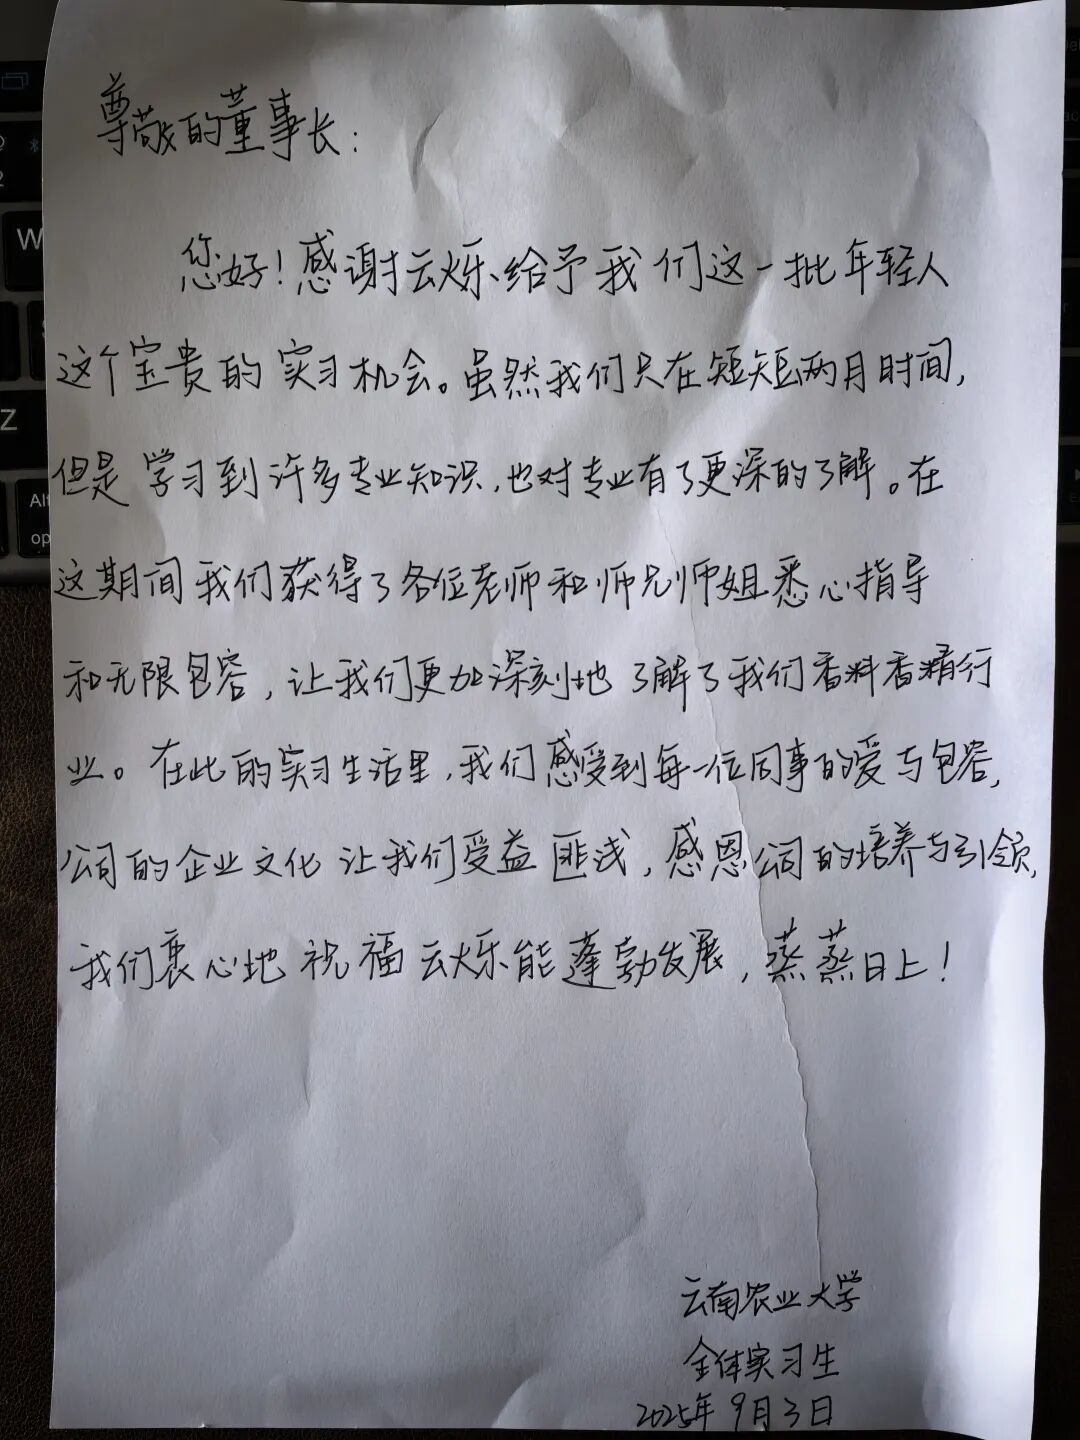 尊敬的董事长：
您好！感谢云烁给予我们这一批年轻人
这个宝贵的实习机会。虽然我们只在短短两月时间，
但是学习到许多专业知识，也对专业有了更深的了解。在
这期间我们获得了各位老师和师兄师姐悉心指导
和无限包容，让我们更加深刻地了解了我们香料香精行
业。在此的实习生活里，我们感受到每一位同事的爱与包容，
公司的企业文化让我们受益匪浅，感恩公司的培养与引领，
我们衷心地祝福云烁能蓬勃发展，蒸蒸日上！
云南农业大学
全体实习生
2025年9月3日
W
Z
Alt
op
2